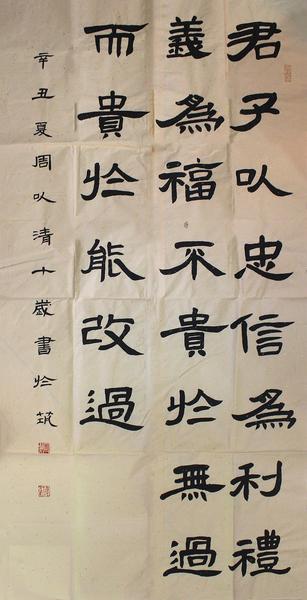 君子以忠信為利禮
義為福不貴於無過
而貴於能改過
辛丑夏周以清十歲書於筑